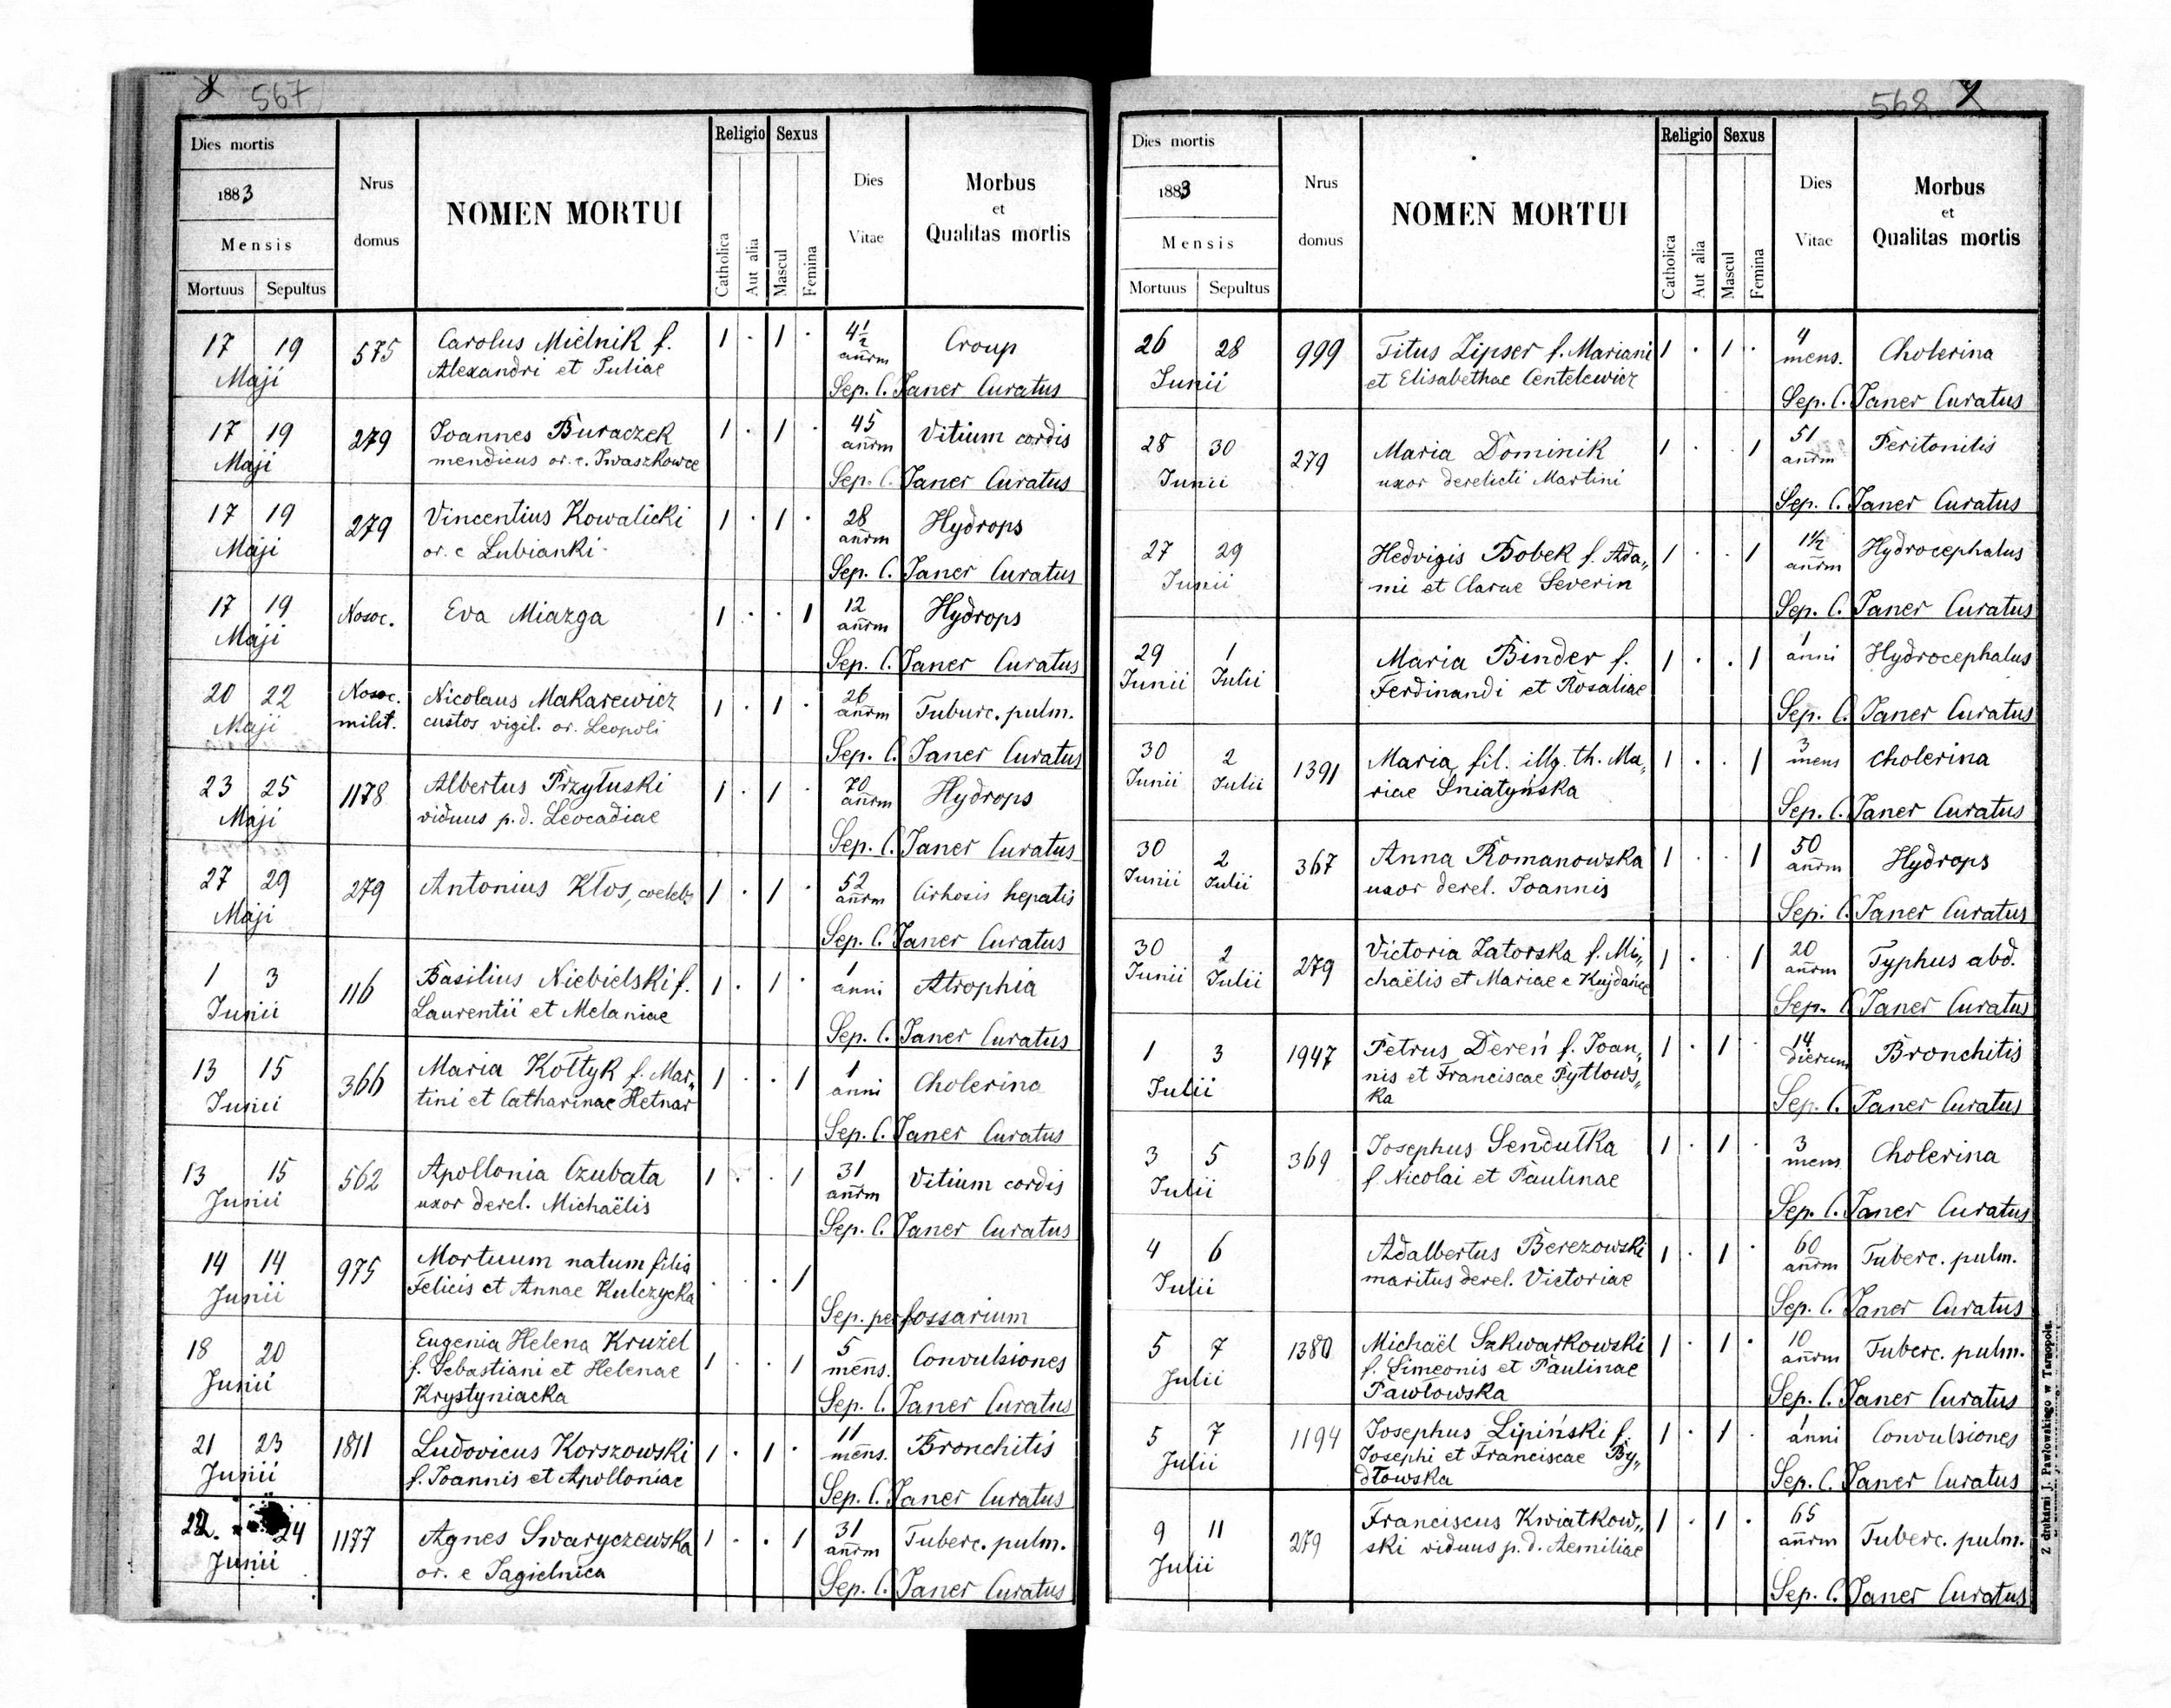 567
Dies mortis
1883
Mensis
Mortuus Sepultus
Nrus domus
NOMEN MORTUI
Religio
Catholica
Aut alia
Sexus
Mascul
Femina
Dies Vitae
Morbus
et
Qualitas mortis
17 19 575 Carolus Mielnik f. 1 . 1 . 4½ Croup
Maji Alexandri et Juliae añrm
Sep. C. Janer Curatus
17 19 279 Joannes Buraczek 1 . 1 . 45 Vitium cordis
Maji mendicus or. e. Iwaszkowce añrm
Sep. C. Janer Curatus
17 19 279 Vincentius Kowalicki 1 . 1 . 28 Hydrops
Maji or. e Lubianki añrm
Sep. C. Janer Curatus
17 19 Nosoc. Eva Miazga 1 . . 1 12 Hydrops
Maji añrm
Sep. C. Janer Curatus
20 22 Nosoc. Nicolaus Makarewicz 1 . 1 . 26 Tuburc. pulm.
Maji milit. custos vigil. or. Leopoli añrm
Sep. C. Janer Curatus
23 25 1178 Albertus Przyłuski 1 . 1 . 70 Hydrops
Maji viduus p.d. Leocadiae añrm
Sep. C. Janer Curatus
27 29 279 Antonius Kłos, coelebs 1 . 1 . 52 Cirhosis hepatis
Maji añrm
Sep. C. Janer Curatus
1 3 116 Basilius Niebielski f. 1 . 1 . 1 Atrophia
Junii Laurentii et Melaniae anni
Sep. C. Janer Curatus
13 15 366 Maria Kołtyk f. Mar„ 1 . . 1 1 Cholerina
Junii tini et Catharinae Hetnar anni
Sep. C. Janer Curatus
13 15 562 Apollonia Czubata 1 . . 1 31 Vitium cordis
Junii uxor derel. Michaëlis añrm
Sep. C. Janer Curatus
14 14 975 Mortuum natum filia . . . 1
Junii Felicis et Annae Kulczycka
Sep. per fossarium
18 20 Eugenia Helena Krużel 1 . . 1 5 Convulsiones
Junii f. Sebastiani et Helenae mens.
Krystyniacka
Sep. C. Janer Curatus
21 23 1811 Ludovicus Korszowski 1 . 1 . 11 Bronchitis
Junii f. Joannis et Apolloniae mens.
Sep. C. Janer Curatus
22. 24 1177 Agnes Swaryczewska 1 . . 1 31 Tuberc. pulm.
Junii or. e Jagielnica añrm
Sep. C. Janer Curatus
568
Dies mortis
1883
Mensis
Mortuus Sepultus
Nrus domus
NOMEN MORTUI
Religio
Catholica
Aut alia
Sexus
Mascul
Femina
Dies Vitae
Morbus
et
Qualitas mortis
26 28 999 Titus Zipser f. Mariani 1 . 1 . 4 Cholerina
Junii et Elisabethae Centelewicz mens.
Sep. C. Janer Curatus
28 30 279 Maria Dominik 1 . . 1 51 Peritonitis
Junii uxor derelicti Martini añrm
Sep. C. Janer Curatus
27 29 Hedvigis Bobek f. Ada„ 1 . . 1 1½ Hydrocephalus
Junii mi et Clarae Severin añrm
Sep. C. Janer Curatus
29 1 Maria Binder f. 1 . . 1 1 Hydrocephalus
Junii Julii Ferdinandi et Rosaliae anni
Sep. C. Janer Curatus
30 2 1391 Maria, fil. illg. th. Ma„ 1 . . 1 3 Cholerina
Junii Julii riae Sniatyńska mens
Sep. C. Janer Curatus
30 2 367 Anna Romanowska 1 . . 1 50 Hydrops
Junii Julii uxor derel. Joannis añrm
Sep. C. Janer Curatus
30 2 279 Victoria Zatorska f. Mi„ 1 . . 1 20 Typhus abd.
Junii Julii chaëlis et Mariae e Kujdańce añrm
Sep. C. Janer Curatus
1 3 1947 Petrus Dereń f. Joan„ 1 . 1 . 14 Bronchitis
Julii nis et Franciscae Pytlows„ dierum
ka
Sep. C. Janer Curatus
3 5 369 Josephus Sendułka 1 . 1 . 3 Cholerina
Julii f. Nicolai et Paulinae mens
Sep. C. Janer Curatus
4 6 Adalbertus Berezowski 1 . 1 . 60 Tuberc. pulm.
Julii maritus derel. Victoriae añrm
Sep. C. Janer Curatus
5 7 1380 Michaël Szkwarkowski 1 . 1 . 10 Tuberc. pulm.
Julii f. Simeonis et Paulinae añrm
Pawłowska
Sep. C. Janer Curatus
5 7 1194 Josephus Lipiński f. 1 . 1 . 1 Convulsiones
Julii Josephi et Franciscae By„ anni
dłowska
Sep. C. Janer Curatus
9 11 279 Franciscus Kwiatkow„ 1 . 1 . 65 Tuberc. pulm.
Julii ski viduus p.d. Aemiliae añrm
Sep. C. Janer Curatus
Z drukarni J. Pawłowskiego w Tarnopolu.